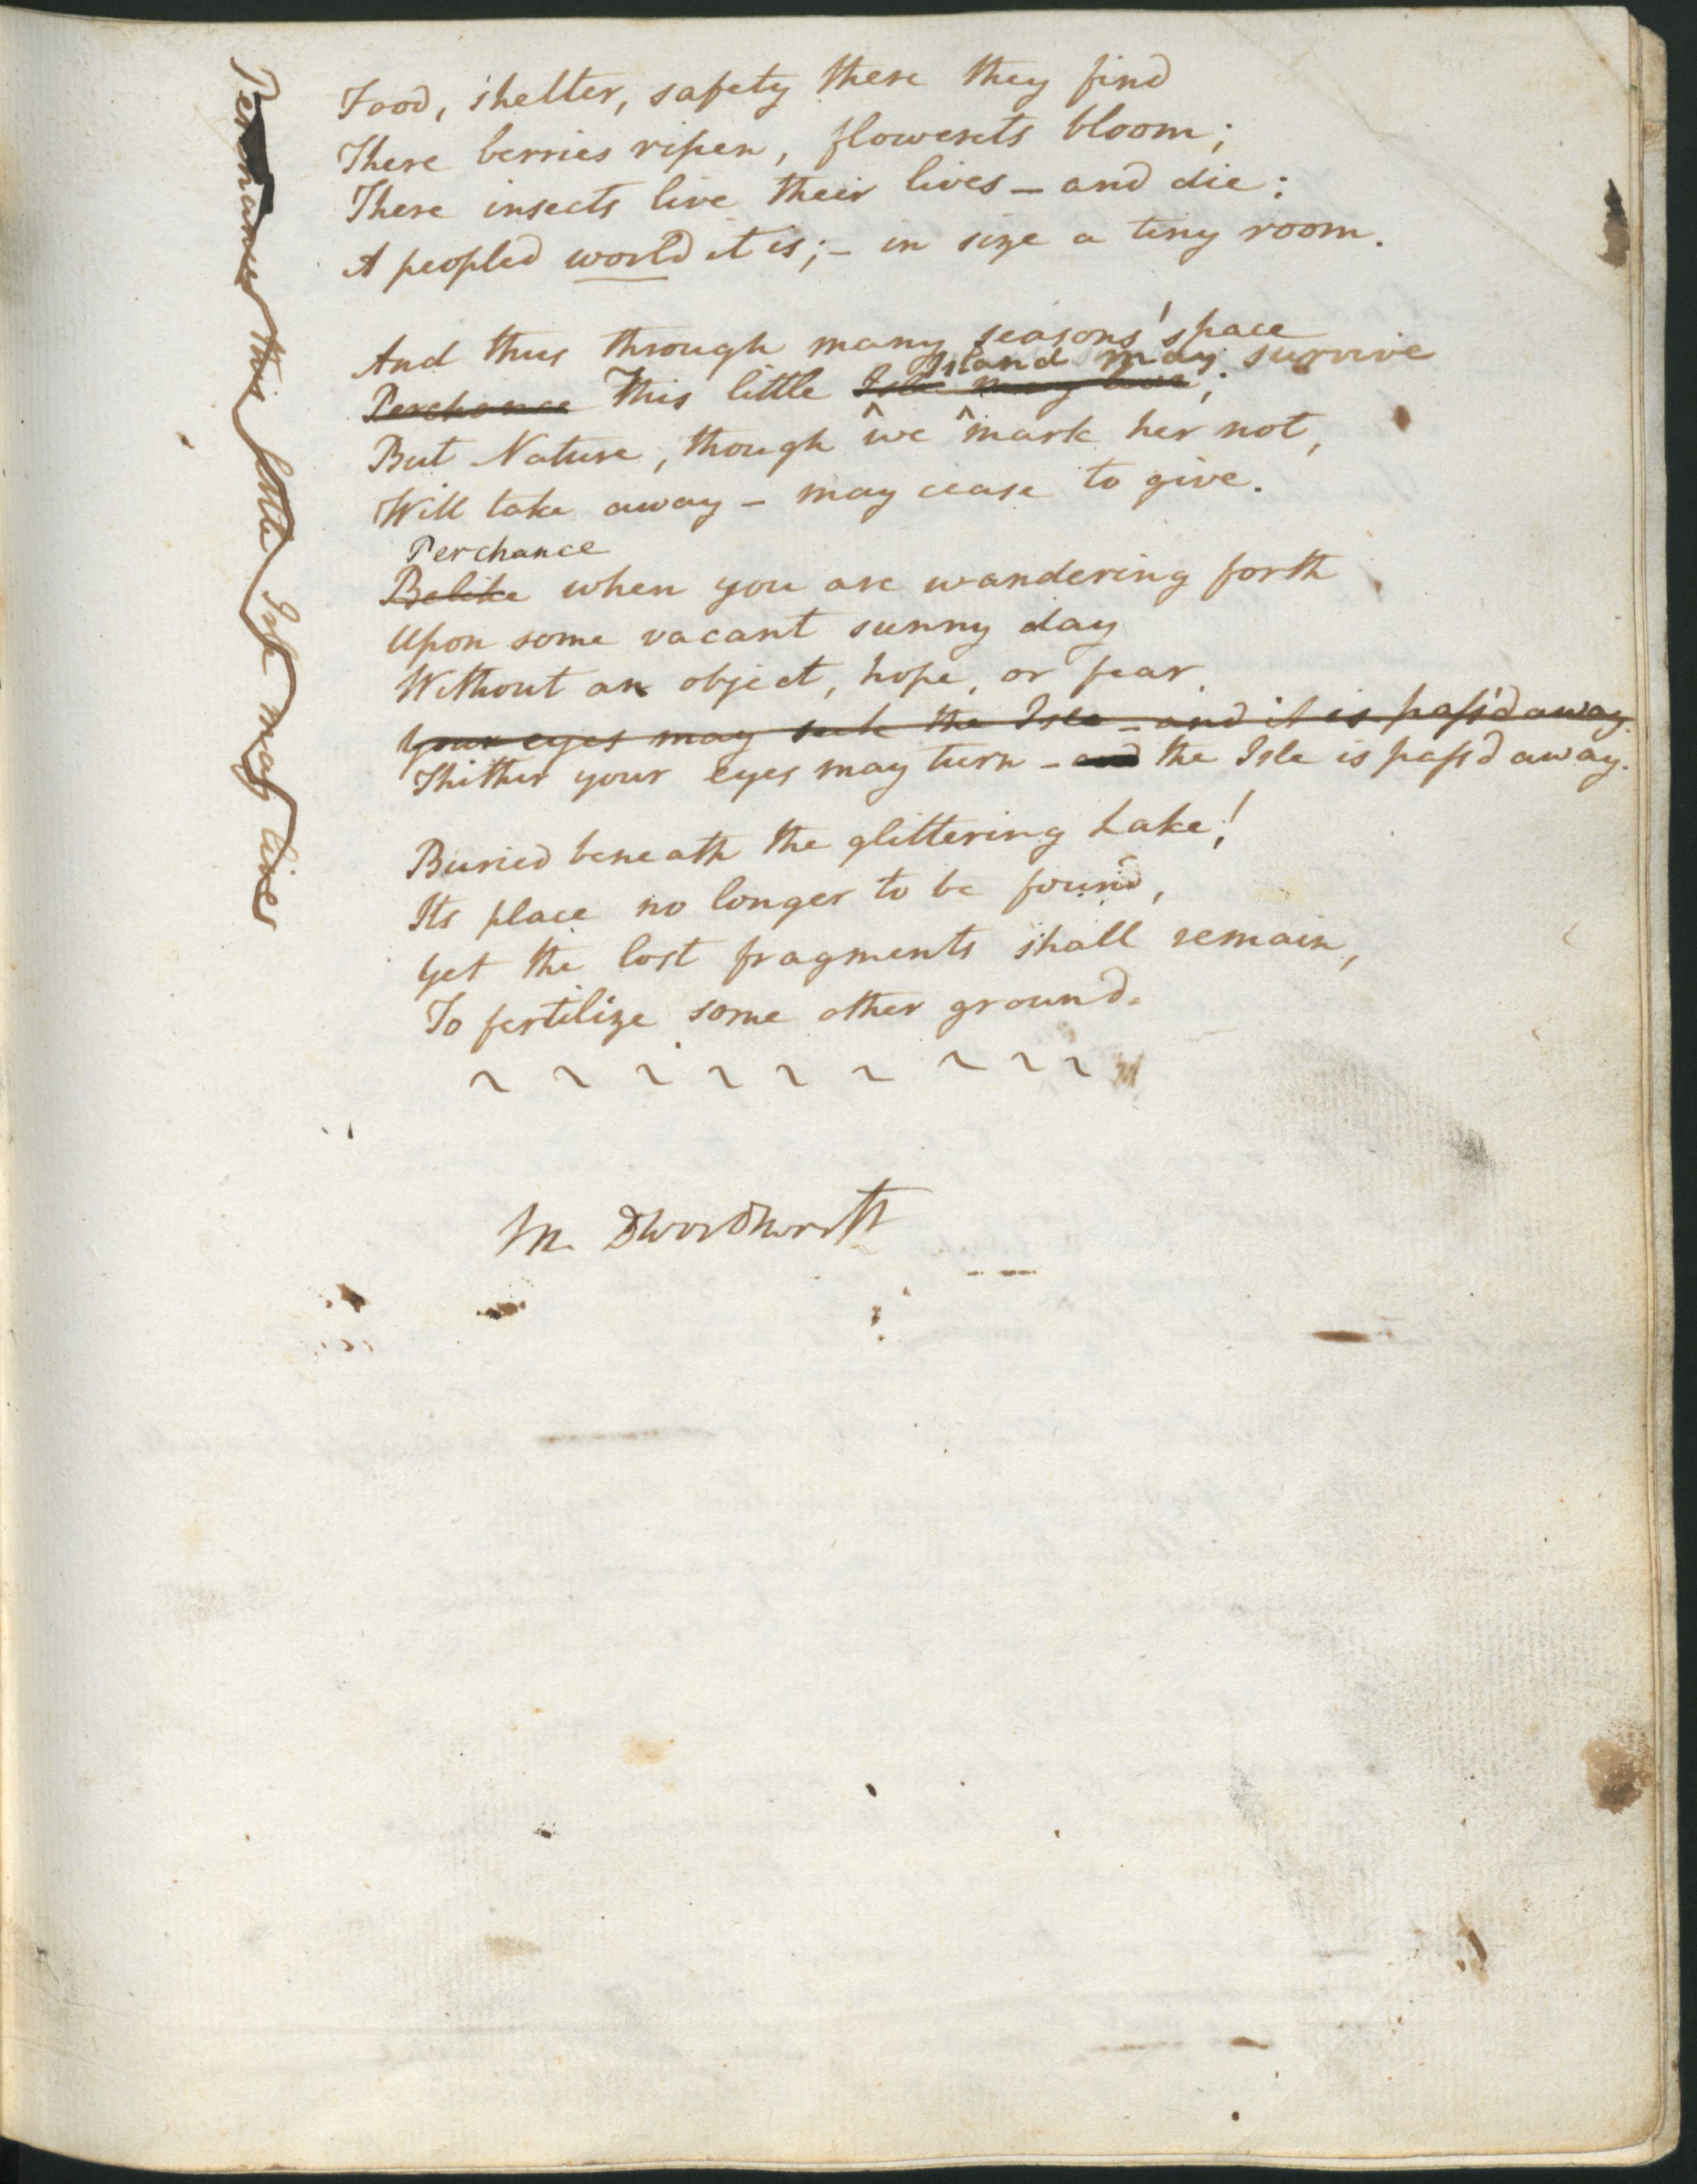 Food, shelter, safety there they find
There berries ripen, flowerets bloom;
There insects live their lives – and die:
A peopled world it is; – in size a tiny room.
And thus through many seasons' space
Island may survive
Perchance This little Isle may live;
But Nature, though we mark her not,
Will take away – may cease to give.
Perchance
Belike when you are wandering forth
Upon some vacant sunny day
Without an object, hope, or fear
Your eyes may seek the Isle – and it is pass'd away.
Thither your eyes may turn – and the Isle is pass'd away.
Buried beneath the glittering Lake!
Its place no longer to be found,
Yet the lost fragments shall remain,
To fertilize some other ground.
D Wordsworth
Perchance this little Isle may live